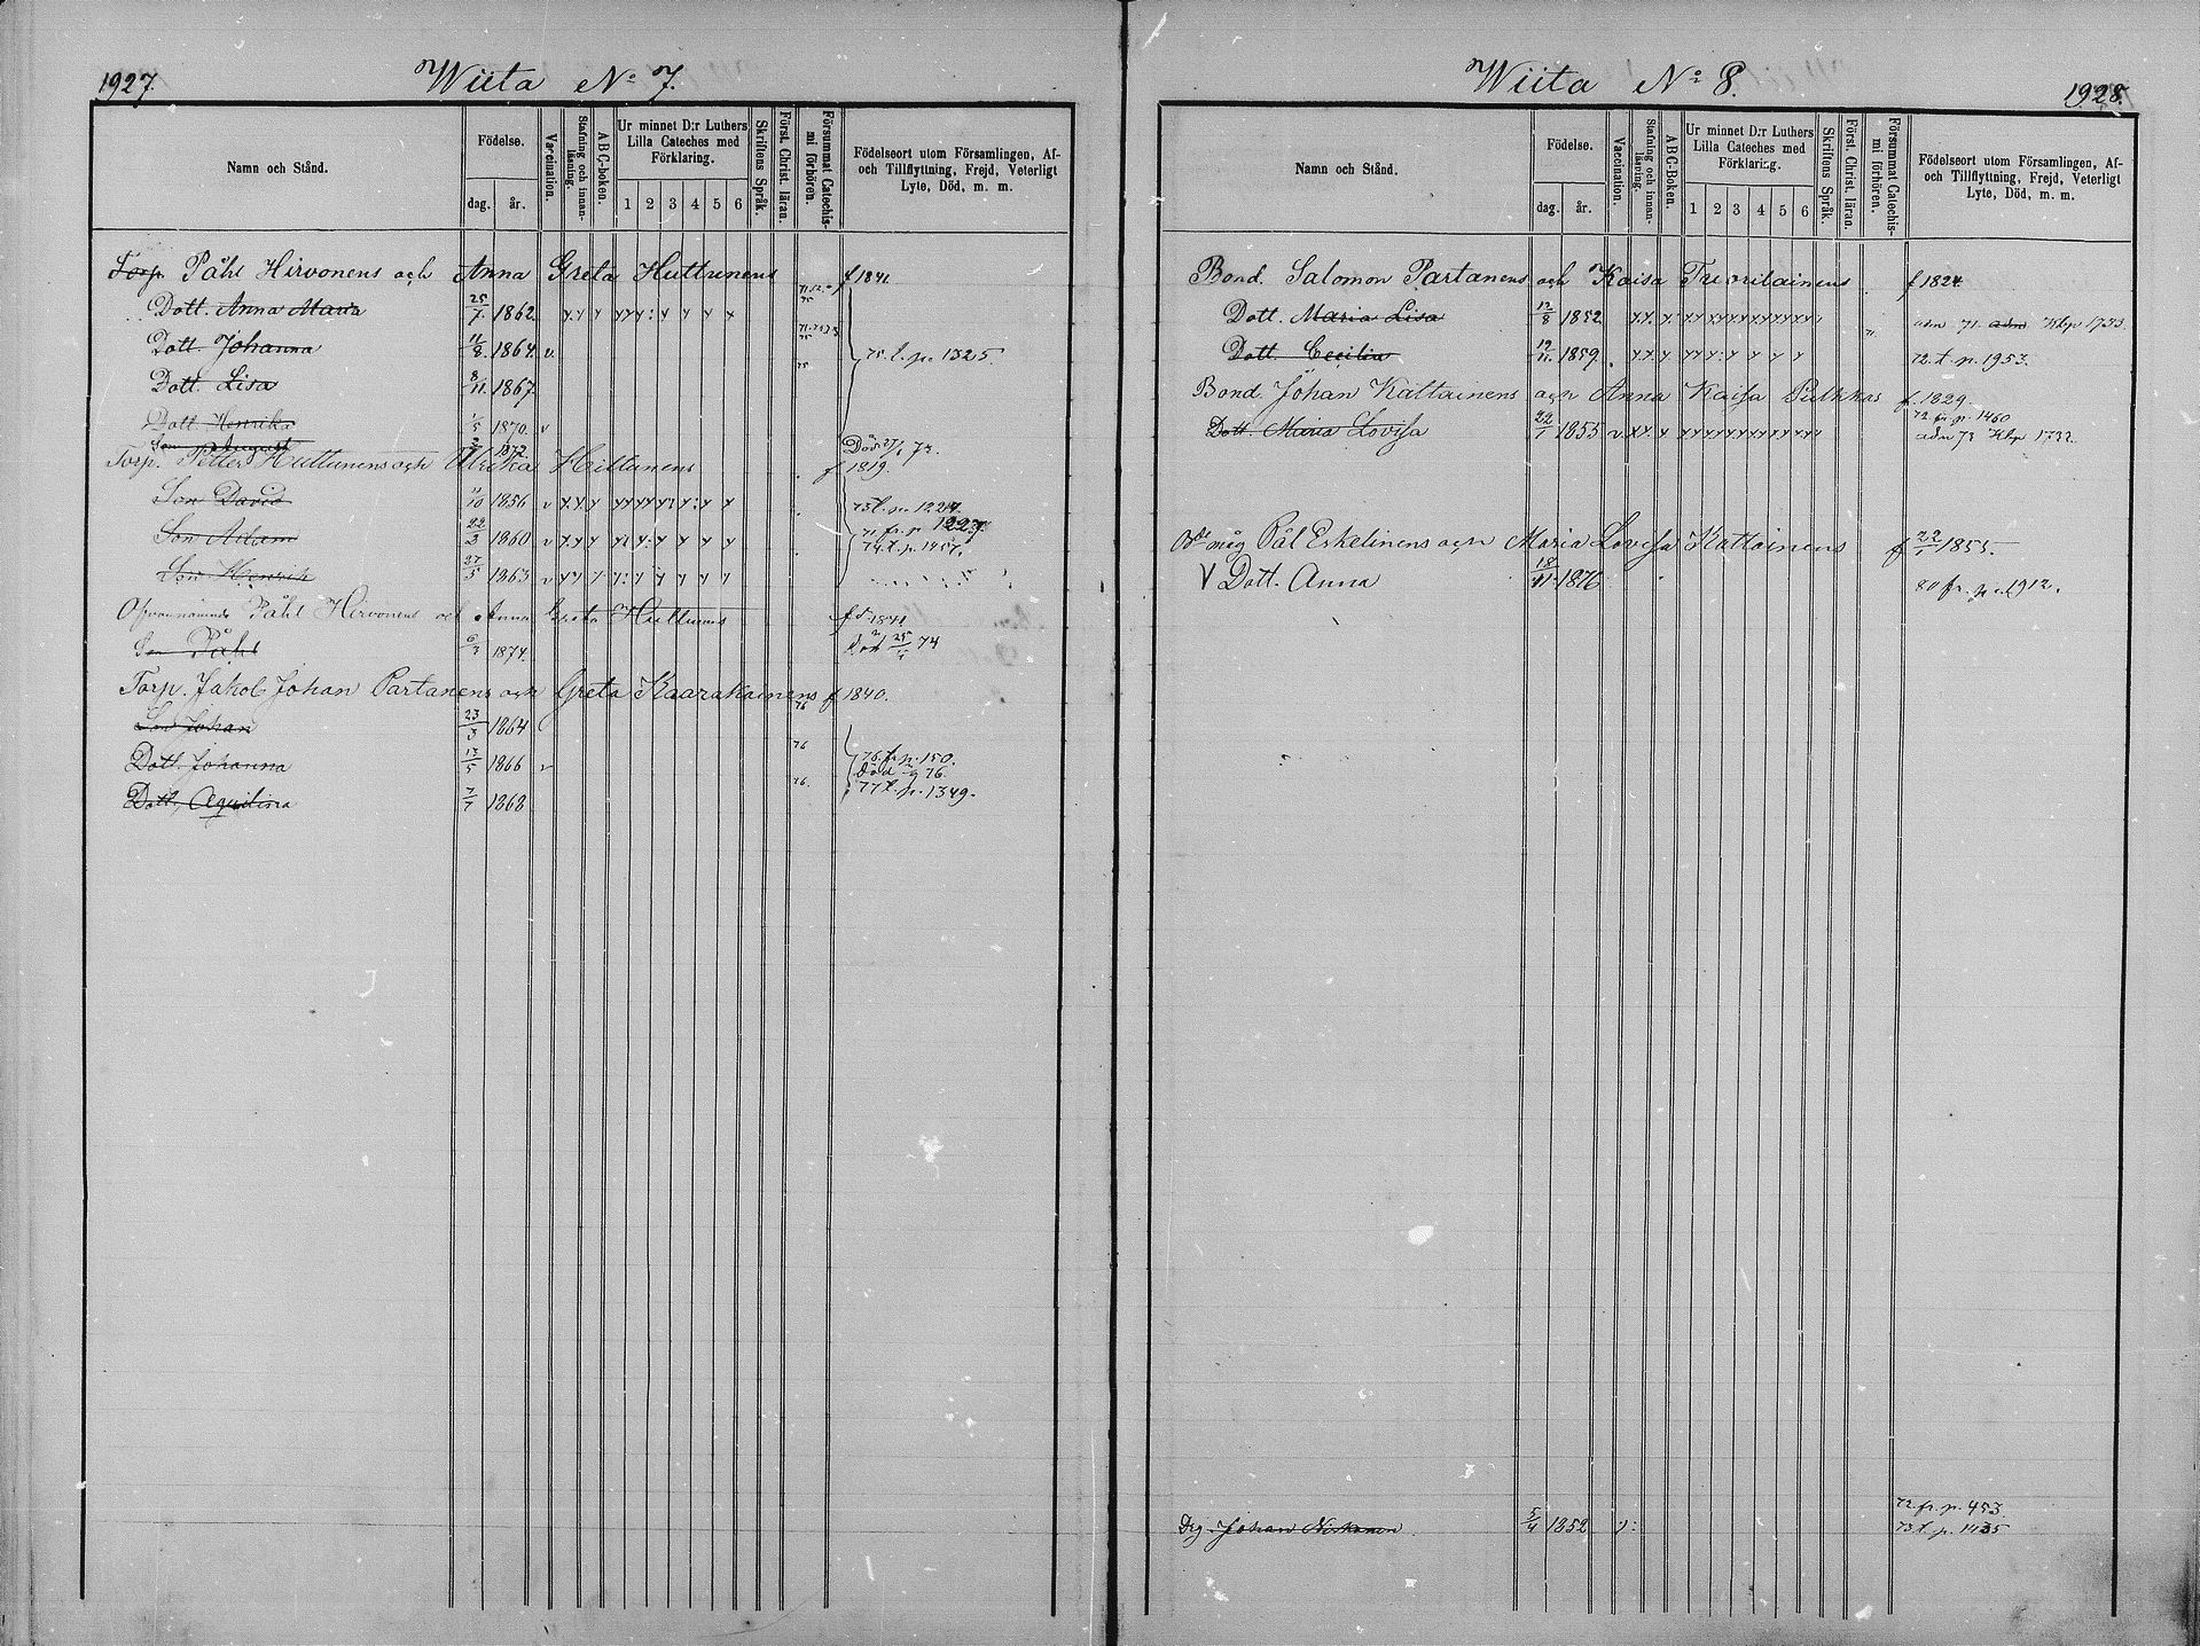 1927.
Wiita No 7.
Namn och Stånd.
Födelse.
dag.
år.
Vaccination.
Stafning och innanläsning.
ABC-boken.
Ur minnet D:r Luthers
Lilla Cateches med
Förklaring.
1 2 3 4 5 6
Skriftens Språk.
Först. Christ. läran.
Försummat Catechismi förhören.
Födelseort utom Församlingen, Af-
och Tillflyttning, Frejd, Veterligt
Lyte, Död, m. m.
Torp. Påhl Hirvonens och Anna Greta Huttunens f 1841.
Dott. Anna Maria 25/7 1862.
Dott. Johanna 11/8 1864. v.
75. t. p. 1325.
Dott. Lisa 8/11 1867.
Dott. Henrika 1/5 1870. v
Son August 1872. Död 73.
Torp. Petter Huttunens och Ulrika Hiltunens f 1819.
Son David 11/10 1856 v
Son Adam 22/3 1860 v
71. fr. p. 1227.
74. t. p. 1457.
Son Henrik 27/5 1863 v
Ofvannämnde Påhl Hirvonens och Anna Greta Huttunens fd 1841
Son Påhl 6/3 1874. död 74
Torp. Jakob Johan Partanens och Greta Kaarakainens f 1840.
76
Son Johan 23/3 1864
Dott. Johanna 13/5 1866 v 76
76. fr. p. 150.
död 76.
Dott. Aqvilina 7/7 1868 76. 77 t. p. 1349.
Wiita No 8.
1928.
Namn och Stånd.
Födelse.
dag.
år.
Vaccination.
Stafning och innanläsning.
ABC-Boken.
Ur minnet D:r Luthers
Lilla Cateches med
Förklaring.
1 2 3 4 5 6
Skriftens Språk.
Först. Christ. läran.
Försummat Catechismi förhören.
Födelseort utom Församlingen, Af-
och Tillflyttning, Frejd, Veterligt
Lyte, Död, m. m.
Bond. Salomon Partanens och Kaisa f 1824
Dott. Maria Lisa 12/8 1852 adm 71. adm Kbp 1733.
Dott. Cecilia 19/11 1859. 72. t. p. 1953.
Bond. Johan Kältainens och Anna Kaisa Pulkkas f. 1829.
72 fr. p. 1460
Dott. Maria Lovisa 22/1 1855 v. adm 73 Kbp 1732.
måg Pål Eskelinens och Maria Lovisa Kattainens f 22/1 1855.
V Dott. Anna 18/11 1876 80 fr. p. 1912.
72. fr. p. 453.
Drg. Johan Niskanen 5/4 1852 73 t. p. 1435